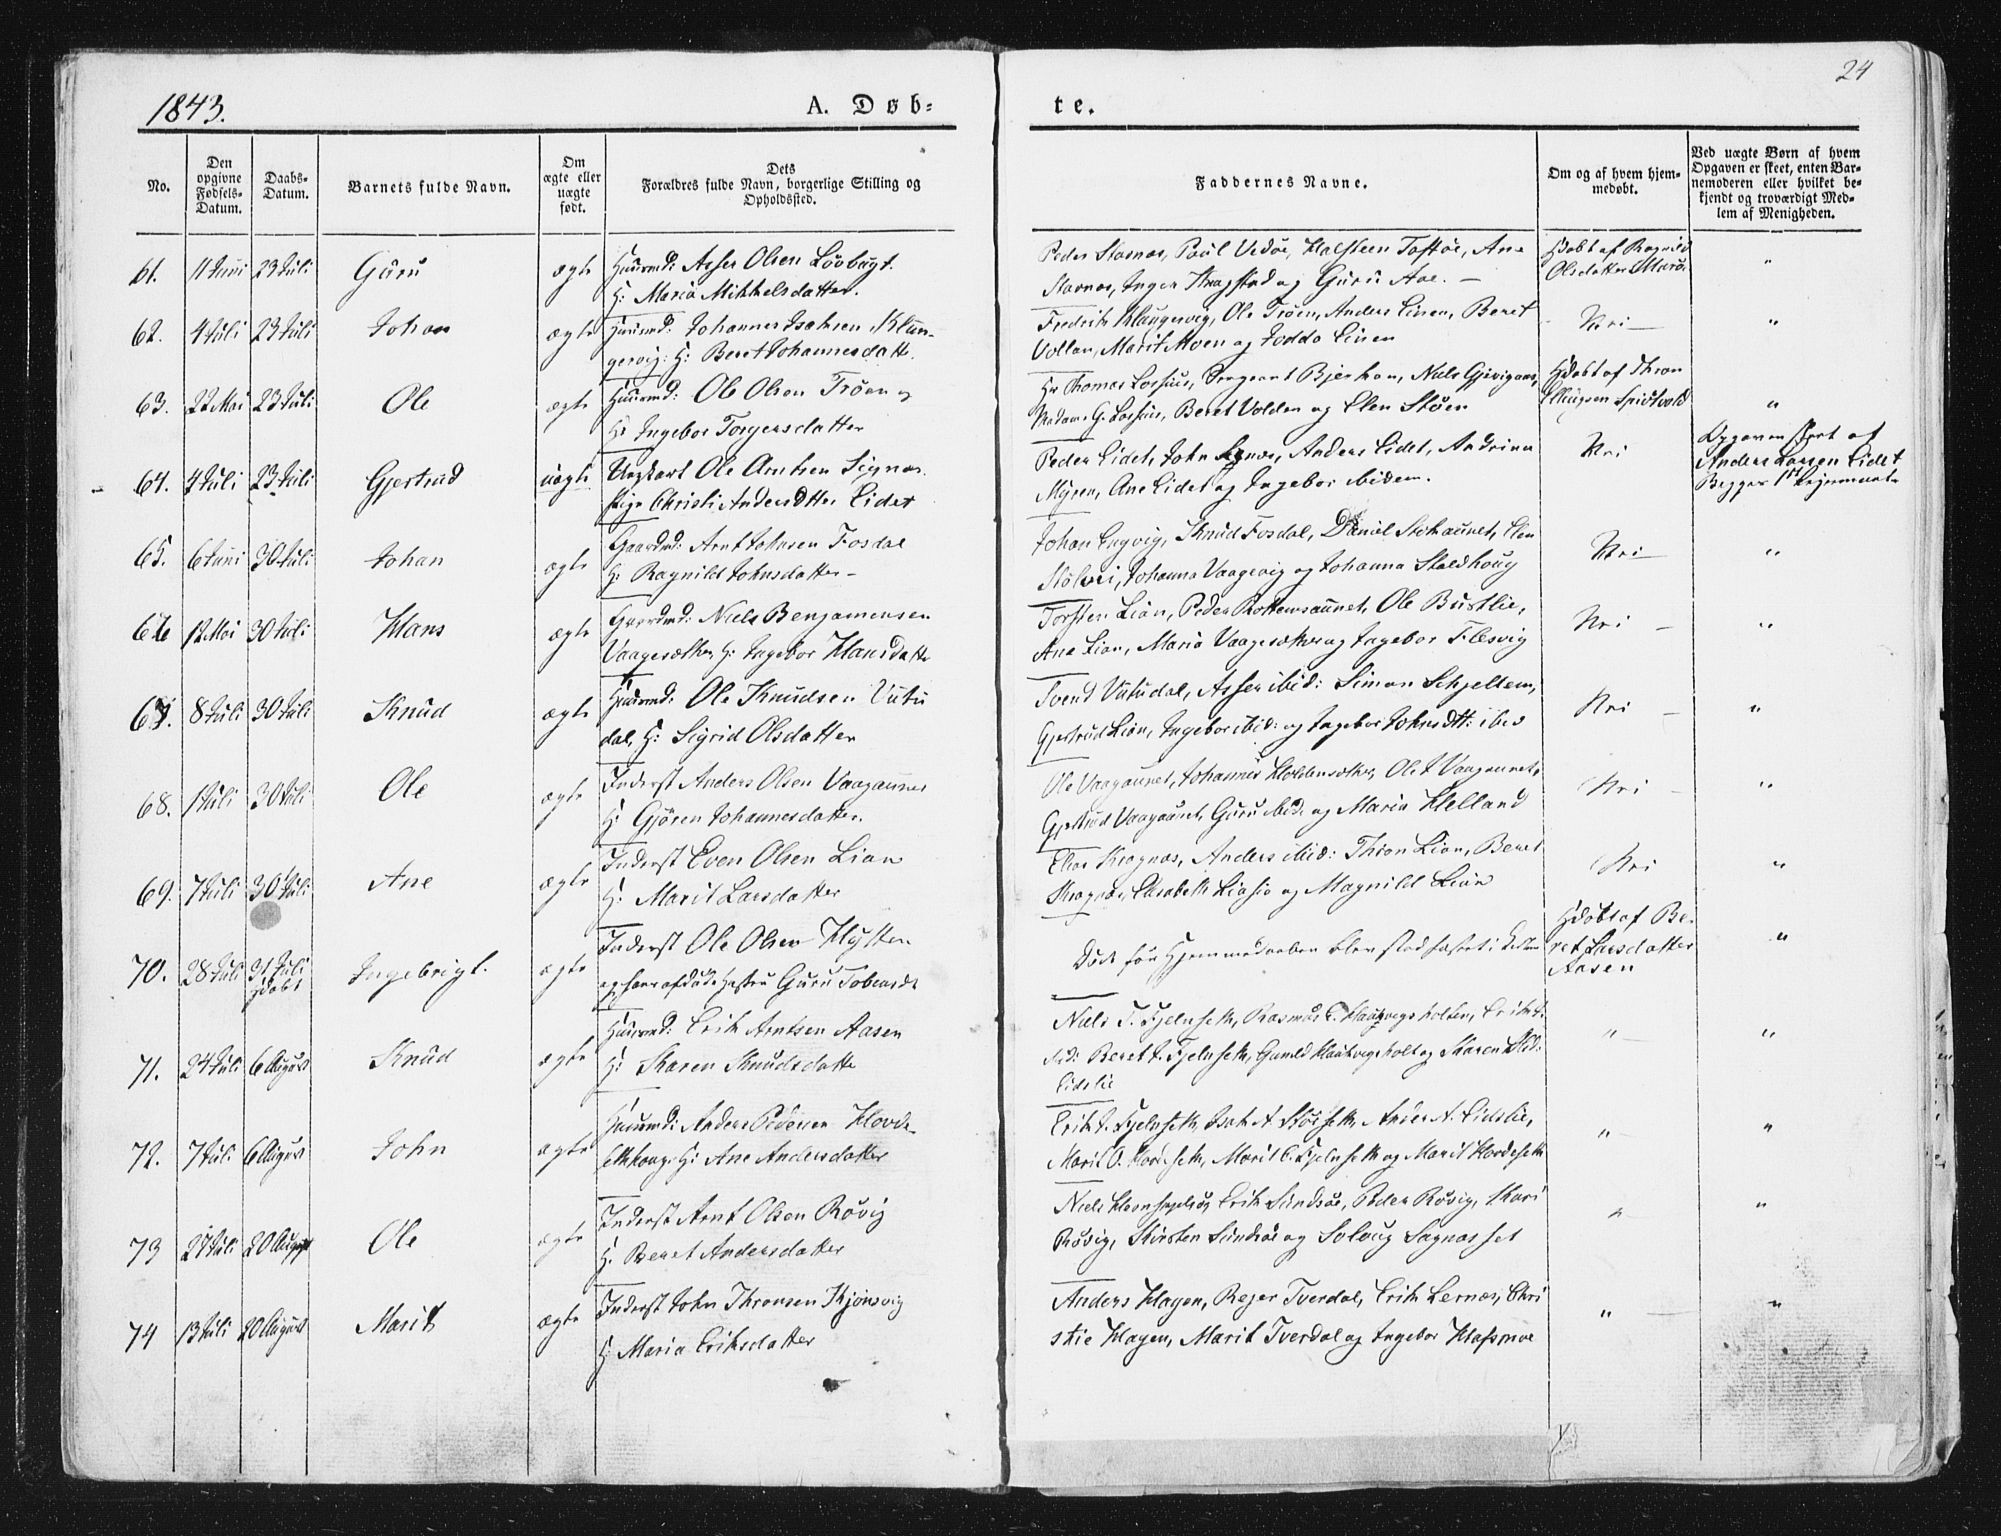 1843.
A. Døb=
te.
24
No.
Den opgivne Fødsels-Datum.
Daabs-Datum.
Barnets fulde Navn.
Om ægte eller uægte født.
Dets Forældres fulde Navn, borgerlige Stilling og Opholdssted.
Faddernes Navne.
Om og af hvem hjemmedøbt.
Ved uægte Børn af hvem Opgaven er skeet, enten Barnemoderen eller hvilket bekjendt og troværdigt Medlem af Menigheden.
61. 11 Juni 23 Juli Guru ægte Huusmd: Asser Olsen Løvbugt.
H: Maria Mikkelsdatter.
Peder Stavnæs, Poul Vedøe, Halsteen Toftøe, Ane
Stavnæs, Inger Kragstad og Guru Aae. —
Hdøbt af Ragnild
Olsdatter
62. 4 Juli 23 Juli Johan ægte Huusmd: Johannes Isaksen Klun-
gervig. H: Beret Johannesdatt.
Fredrik Klungervig, Ole Trøen, Anders Linen, Beret
Vollan, Marit Moen og Linen
Nei —
63. 22 Mai 23 Juli Ole ægte Huusmd: Ole Olsen Trøen og
H: Ingebor Torgersdatter
Hr Thomas Losjius, Sergeant Bjerkan, Niels
Madam G. Losjius, Beret Volden og Elen Støen
Hdøbt af Thron
64. 4 Juli 23 Juli Gjertrud uægte Ungkarl Ole Arntsen
Pige Christi Andersdtter Eidet
Peder Eidet, John Anders Eidet, Andrina
Myren, Ane Eidet og Ingebor ibidem.
Nei
Opgaven skeet af
Anders Larsen Eidet
65. 6 Juni 30 Juli Johan ægte Gaardmd: Arnt Johnsen Fosdal
H: Ragnild Johnsdatter —
Johan Engvig, Knud Fosdal, Daniel Elen
Johanna Vaagevig og Johanna Staldhoug
Nei —
66 12 Mai 30 Juli Hans ægte Gaardmd: Niels Benjamensen
Vaagesæther, H: Ingebor Hansdatter
Torsten Lian, Peder Ole Bustlie,
Ane Lian, Maria Vaagesæther og Ingebor Flesvig
Nei —
67. 8 Juli 30 Juli Knud ægte Huusmd: Ole Knudsen Vutu
dal, H: Sigrid Olsdatter
Svend Vutudal, Asser ibid: Simon Schjellem,
Gjertrud Lian, Ingebor ibid: og Ingebor Johnsdtt: ibid
Nei —
68. 1 Juli 30 Juli Ole ægte Inderst Anders Olsen Vaagaunet
H: Gjøren Johannesdatter.
Ole Vaagaunet, Johannes Ole J Vaagaunet,
Gjertrud Vaagaunet, Guru ibid: og Maria Helland
Nei —
69. 7 Juli 30 Juli Ane ægte Inderst Even Olsen Lian
H: Marit Larsdatter
Elias Kragnæs, Anders ibid: Thron Lian, Beret
Kragnæs, Elisabeth og Magnild Lian
Nei
70. 28 Juli 31 Juli
Hdøbt
Ingebrigt. ægte Inderst Ole Olsen Hysten
og hans afdøde Hustru Guru
Døde før Hjemmedaaben blev stadfæstet i Kirken
Hdøbt af Be-
ret Larsdatter
Aasen
71. 24 Juli 6 August Knud ægte Huusmd: Erik Arntsen Aasen
H: Karen Knudsdatter
Niels J. Fjelnseth, Rasmus Erik J.
ibid: Beret J. Fjelnseth, Gunild og Karen
Eidslie
72. 7 Juli 6 August John ægte Huusmd: Anders Pedersen Hovde-
H: Ane Andersdatter
Erik J. Fjelnseth, Isak A. Støeseth, Anders A. Eidslie,
Marit O. Hovdeseth, Marit E. Fjelnseth og Marit Hovdeseth
73 27 Juli 20 August Ole ægte Inderst Arnt Olsen Røvig
H: Beret Andersdatter
Niels Erik Sundsøe, Peder Røvig, Kari
Røvig, Kirsten Sundsøe og Solvug Sagnæsset
74 13 Juli 20 August Marit ægte Inderst John Thronsen Kjønsvig
H: Maria Eriksdatter
Anders Hagen, Reier Tverdal, Erik Lernæs, Chri
stie Hagen, Marit Tverdal og Ingebor Hafsmoe